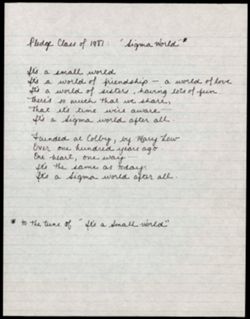 Pledge Class of 1981: "Sigma World"*
It's a small world
It's a world of friendship - a world of love
It's a world of sisters, having lots of fun
There's so much that we share,
That it's time we're aware
It's a Sigma world after all.
Founded at Colby, by Mary Low
Over one hundred years ago
One heart, one way
It's the same as today.
It's a Sigma world after all.
* to the tune of "It's a Small World"